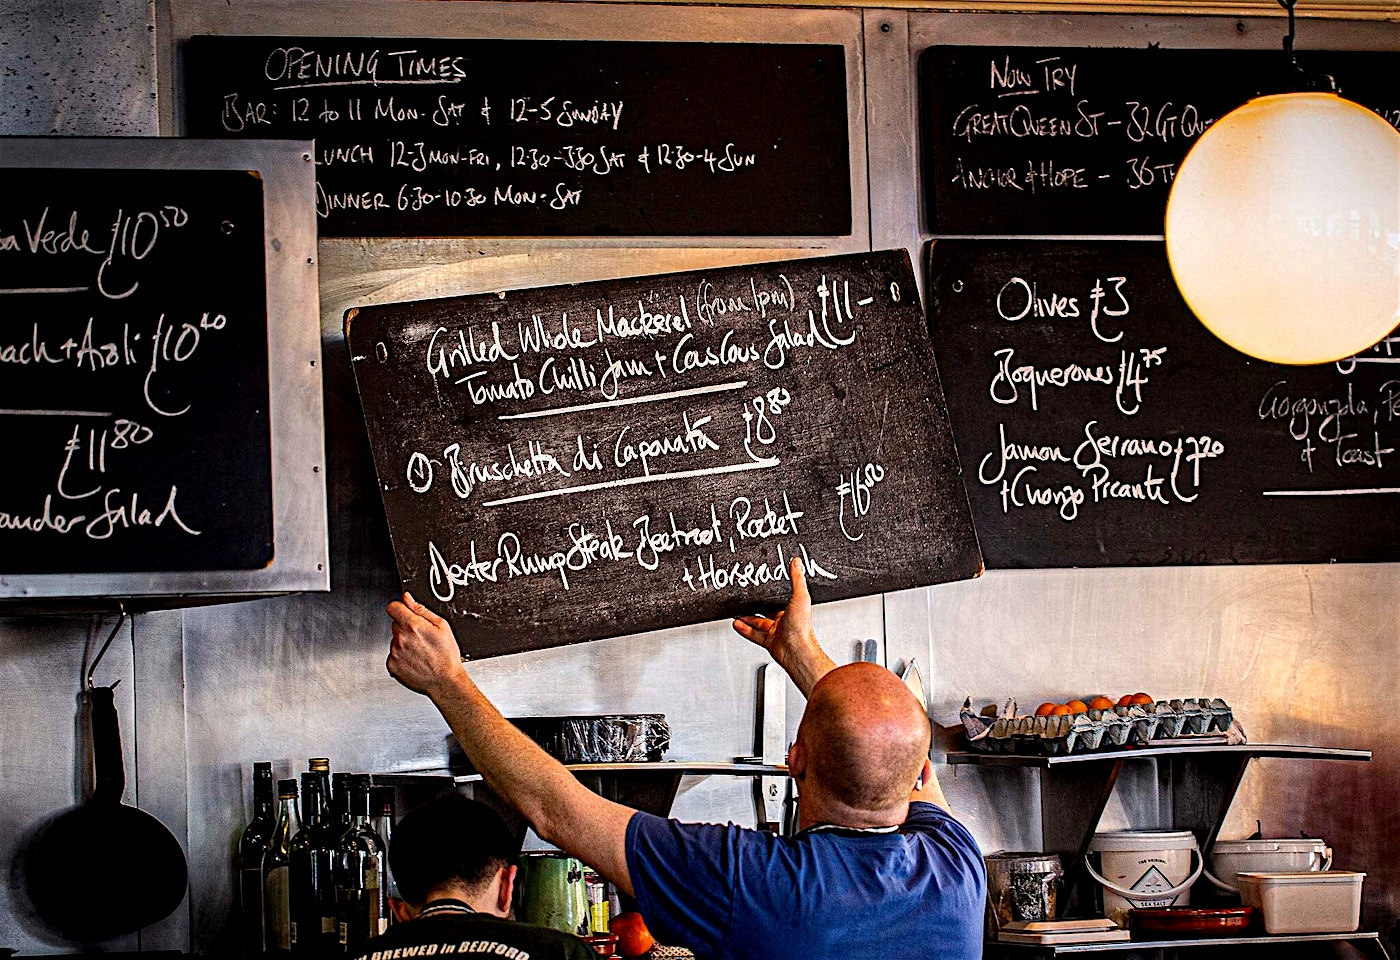 OPENING TIMES
BAR: 12 to 11 MON-SAT & 12-5 SUNDAY
LUNCH 12-3 MON-FRI, 12.30-3.30 SAT & 12.30-4 SUN
DINNER 6.30-10.30 MON-SAT
NOW TRY
GREAT QUEEN ST - 32 GT QUE
ANCHOR & HOPE - 36 TH
Verde £10 50
ach + Aioli £10 40
£11 80
ander Salad
Grilled Whole Mackerel (from 1pm) £11-
Tomato Chilli Jam + CousCous Salad
V Bruschetta di Caponata £8 80
Dexter Rump Steak Beetroot, Rocket £16 80
+ Horseradish
Olives £3
Boquerones £4.75
Jamon Serrano £7 20
+ Chorizo Picante
Gorgonzola,
+ Toast
BREWED in BEDFORD
THE ORIGINAL
SEA SALT